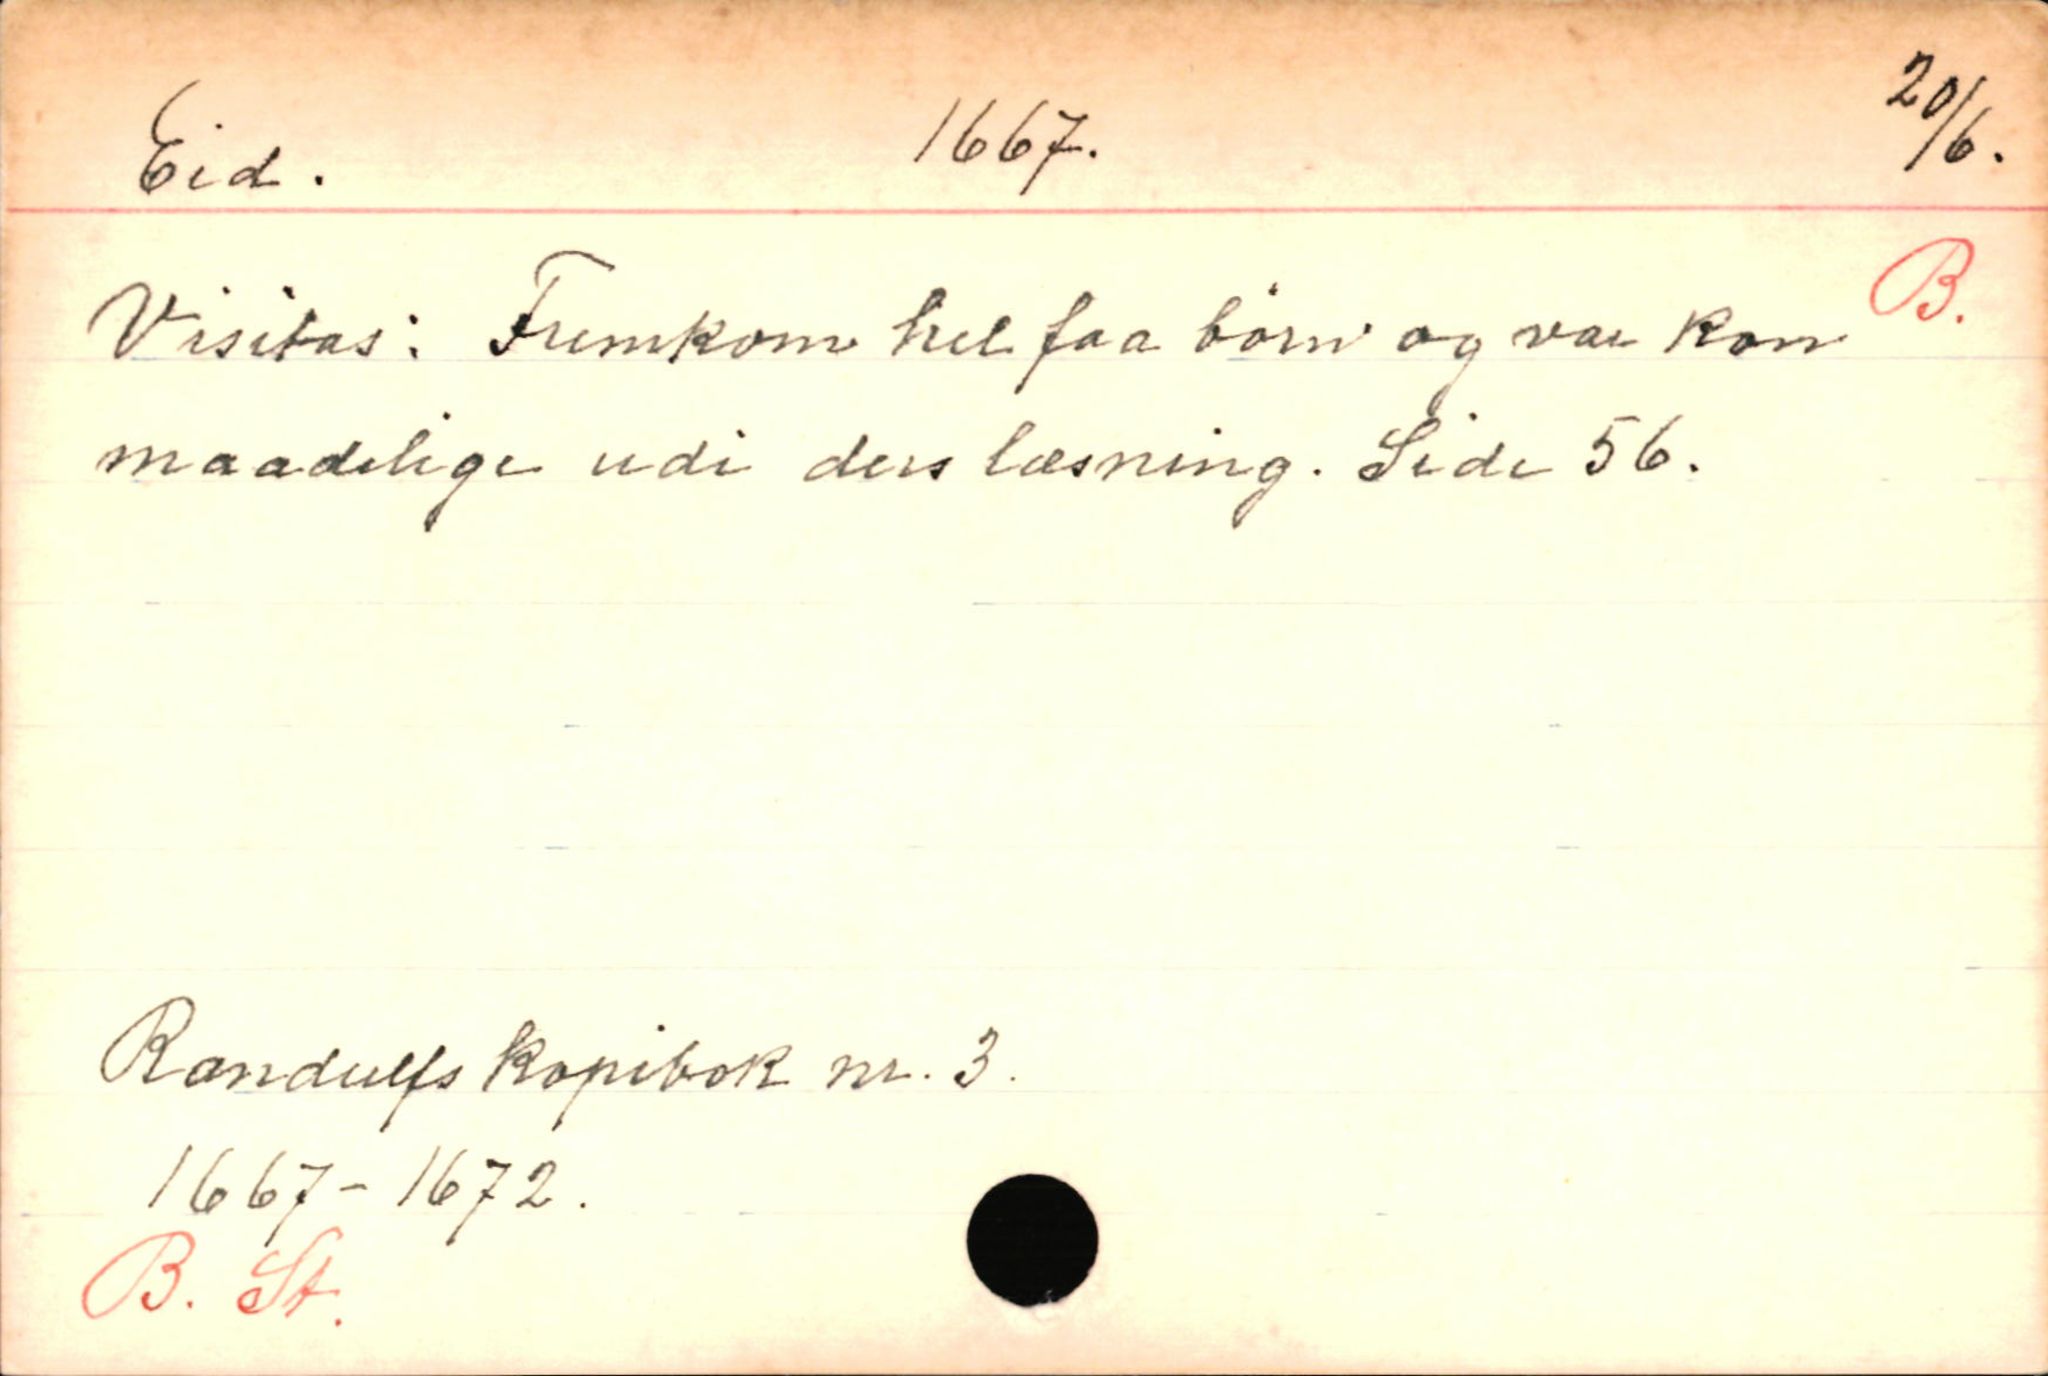 Eid. 1667. 20/6.
B.
Visitas: Fremkom hel faa börn og var kon
maadelige udi ders læsning. Side 56.
Randulfs kopibok nr. 3.
1667-1672.
B. St.